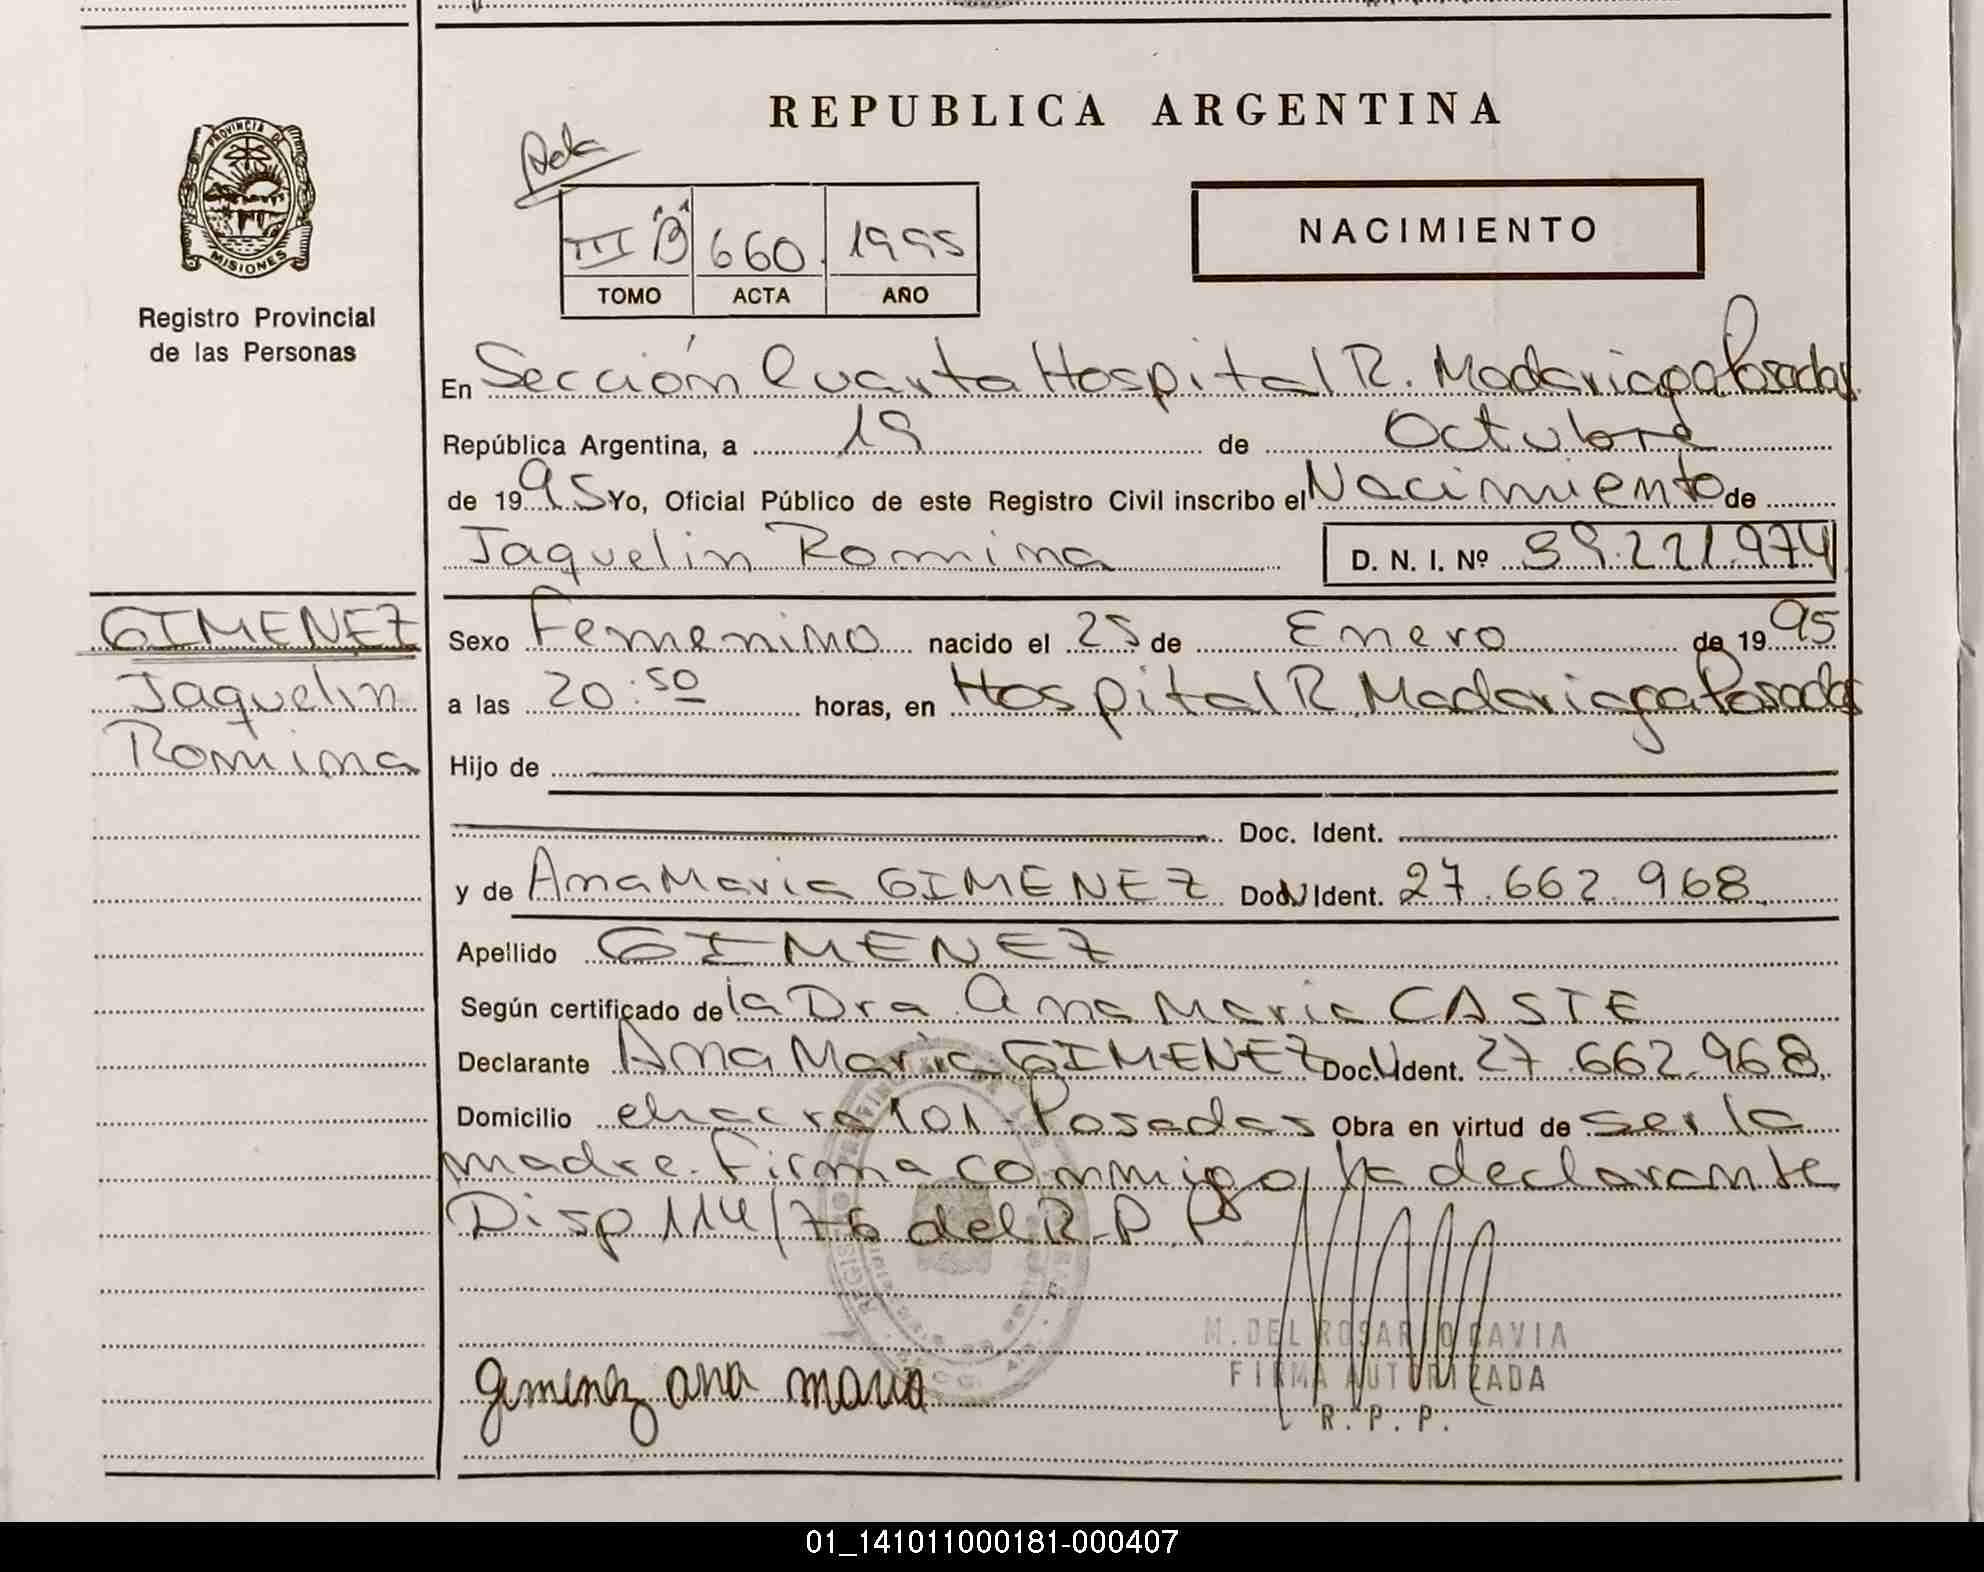 REPUBLICA ARGENTINA
PROVINCIA DE
MISIONES
Registro Provincial
de las Personas
III "B" 660 1995
TOMO ACTA AÑO
NACIMIENTO
En Sección Cuarta Hospital R. Madariaga Posadas
República Argentina, a 19 de Octubre
de 1995 Yo, Oficial Público de este Registro Civil inscribo el Nacimiento de
Jaquelin Romina D. N. I. Nº 39.221.974
GIMENEZ
Jaquelin
Romina
Sexo Femenino nacido el 25 de Enero de 1995
a las 20:50 horas, en Hospital R. Madariaga Posadas
Hijo de
Doc. Ident.
y de Ana Maria GIMENEZ Doc. Ident. 27.662.968
Apellido GIMENEZ
Según certificado de la Dra. Ana Maria CASTE
Declarante Ana Maria GIMENEZ Doc. Ident. 27.662.968
Domicilio chacra 101 - Posadas Obra en virtud de ser la
madre. Firma conmigo la declarante
Disp 114/76 del R.P.P.
M. DEL ROSARIO CAVIA
FIRMA AUTORIZADA
R. P. P.
gimenez ana maria
01_141011000181-000407